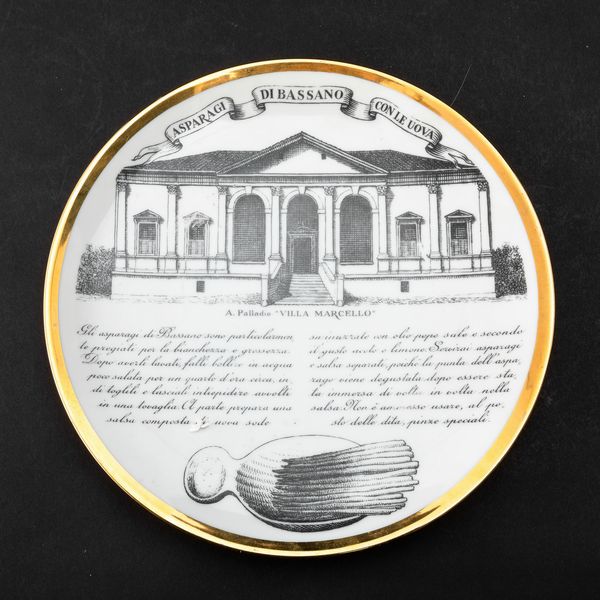 ASPARAGI DI BASSANO CON LE UOVA
A. Palladio "VILLA MARCELLO"
Gli asparagi di Bassano sono particolarmen
te pregiati per la bianchezza e grossezza.
Dopo averli lavati, falli bollire in acqua
poco salata per un quarto d'ora circa, in
di toglili e lasciali intiepidire avvolti
in una tovaglia. A parte prepara una
salsa composta di uova sode
sminuzzate con olio pepe sale e secondo
il gusto aceto o limone. Servirai asparagi
e salsa separati, poiché la punta dell'aspa,
rago viene degustata dopo essere sta,
ta immersa di volta in volta nella
salsa. Non è ammesso usare, al po,
sto delle dita, pinze speciali.